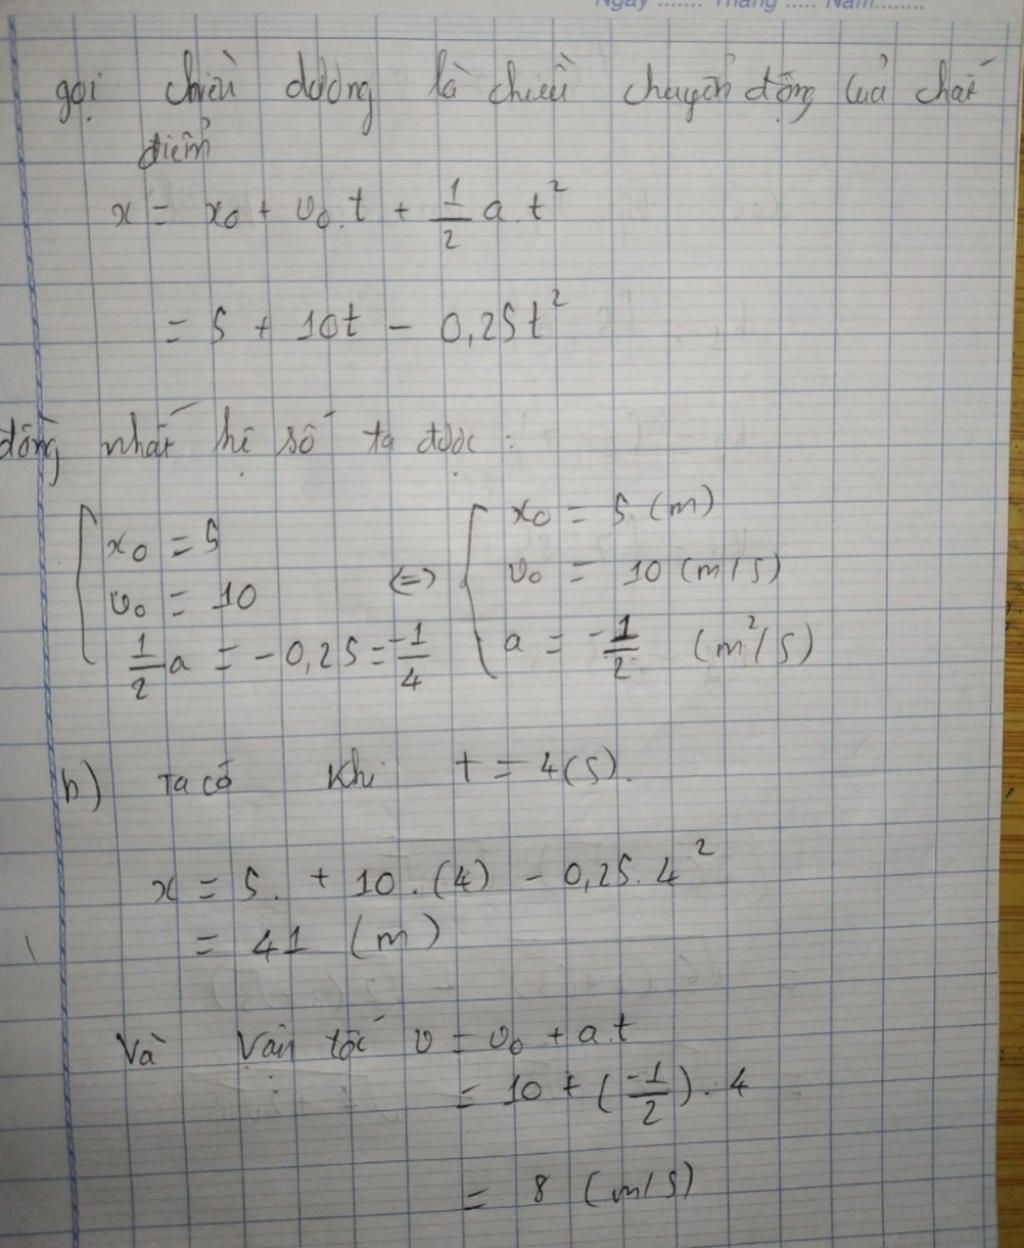 Ngày ....... Tháng ..... Năm........
gọi chiều dương là chiều chuyển động của chất
điểm
x = x₀ + v₀.t + 1/2 a.t²
= 5 + 10t - 0,25t²
đồng nhất hệ số ta được :
{ x₀ = 5
v₀ = 10
1/2 a = -0,25 = -1/4
<=> { x₀ = 5 (m)
v₀ = 10 (m/s)
a = -1/2 (m²/s)
b) Ta có Khi t = 4(s).
x = 5. + 10.(4) - 0,25.4²
= 41 (m)
Và Vận tốc v = v₀ + a.t
= 10 + (-1/2).4
= 8 (m/s)